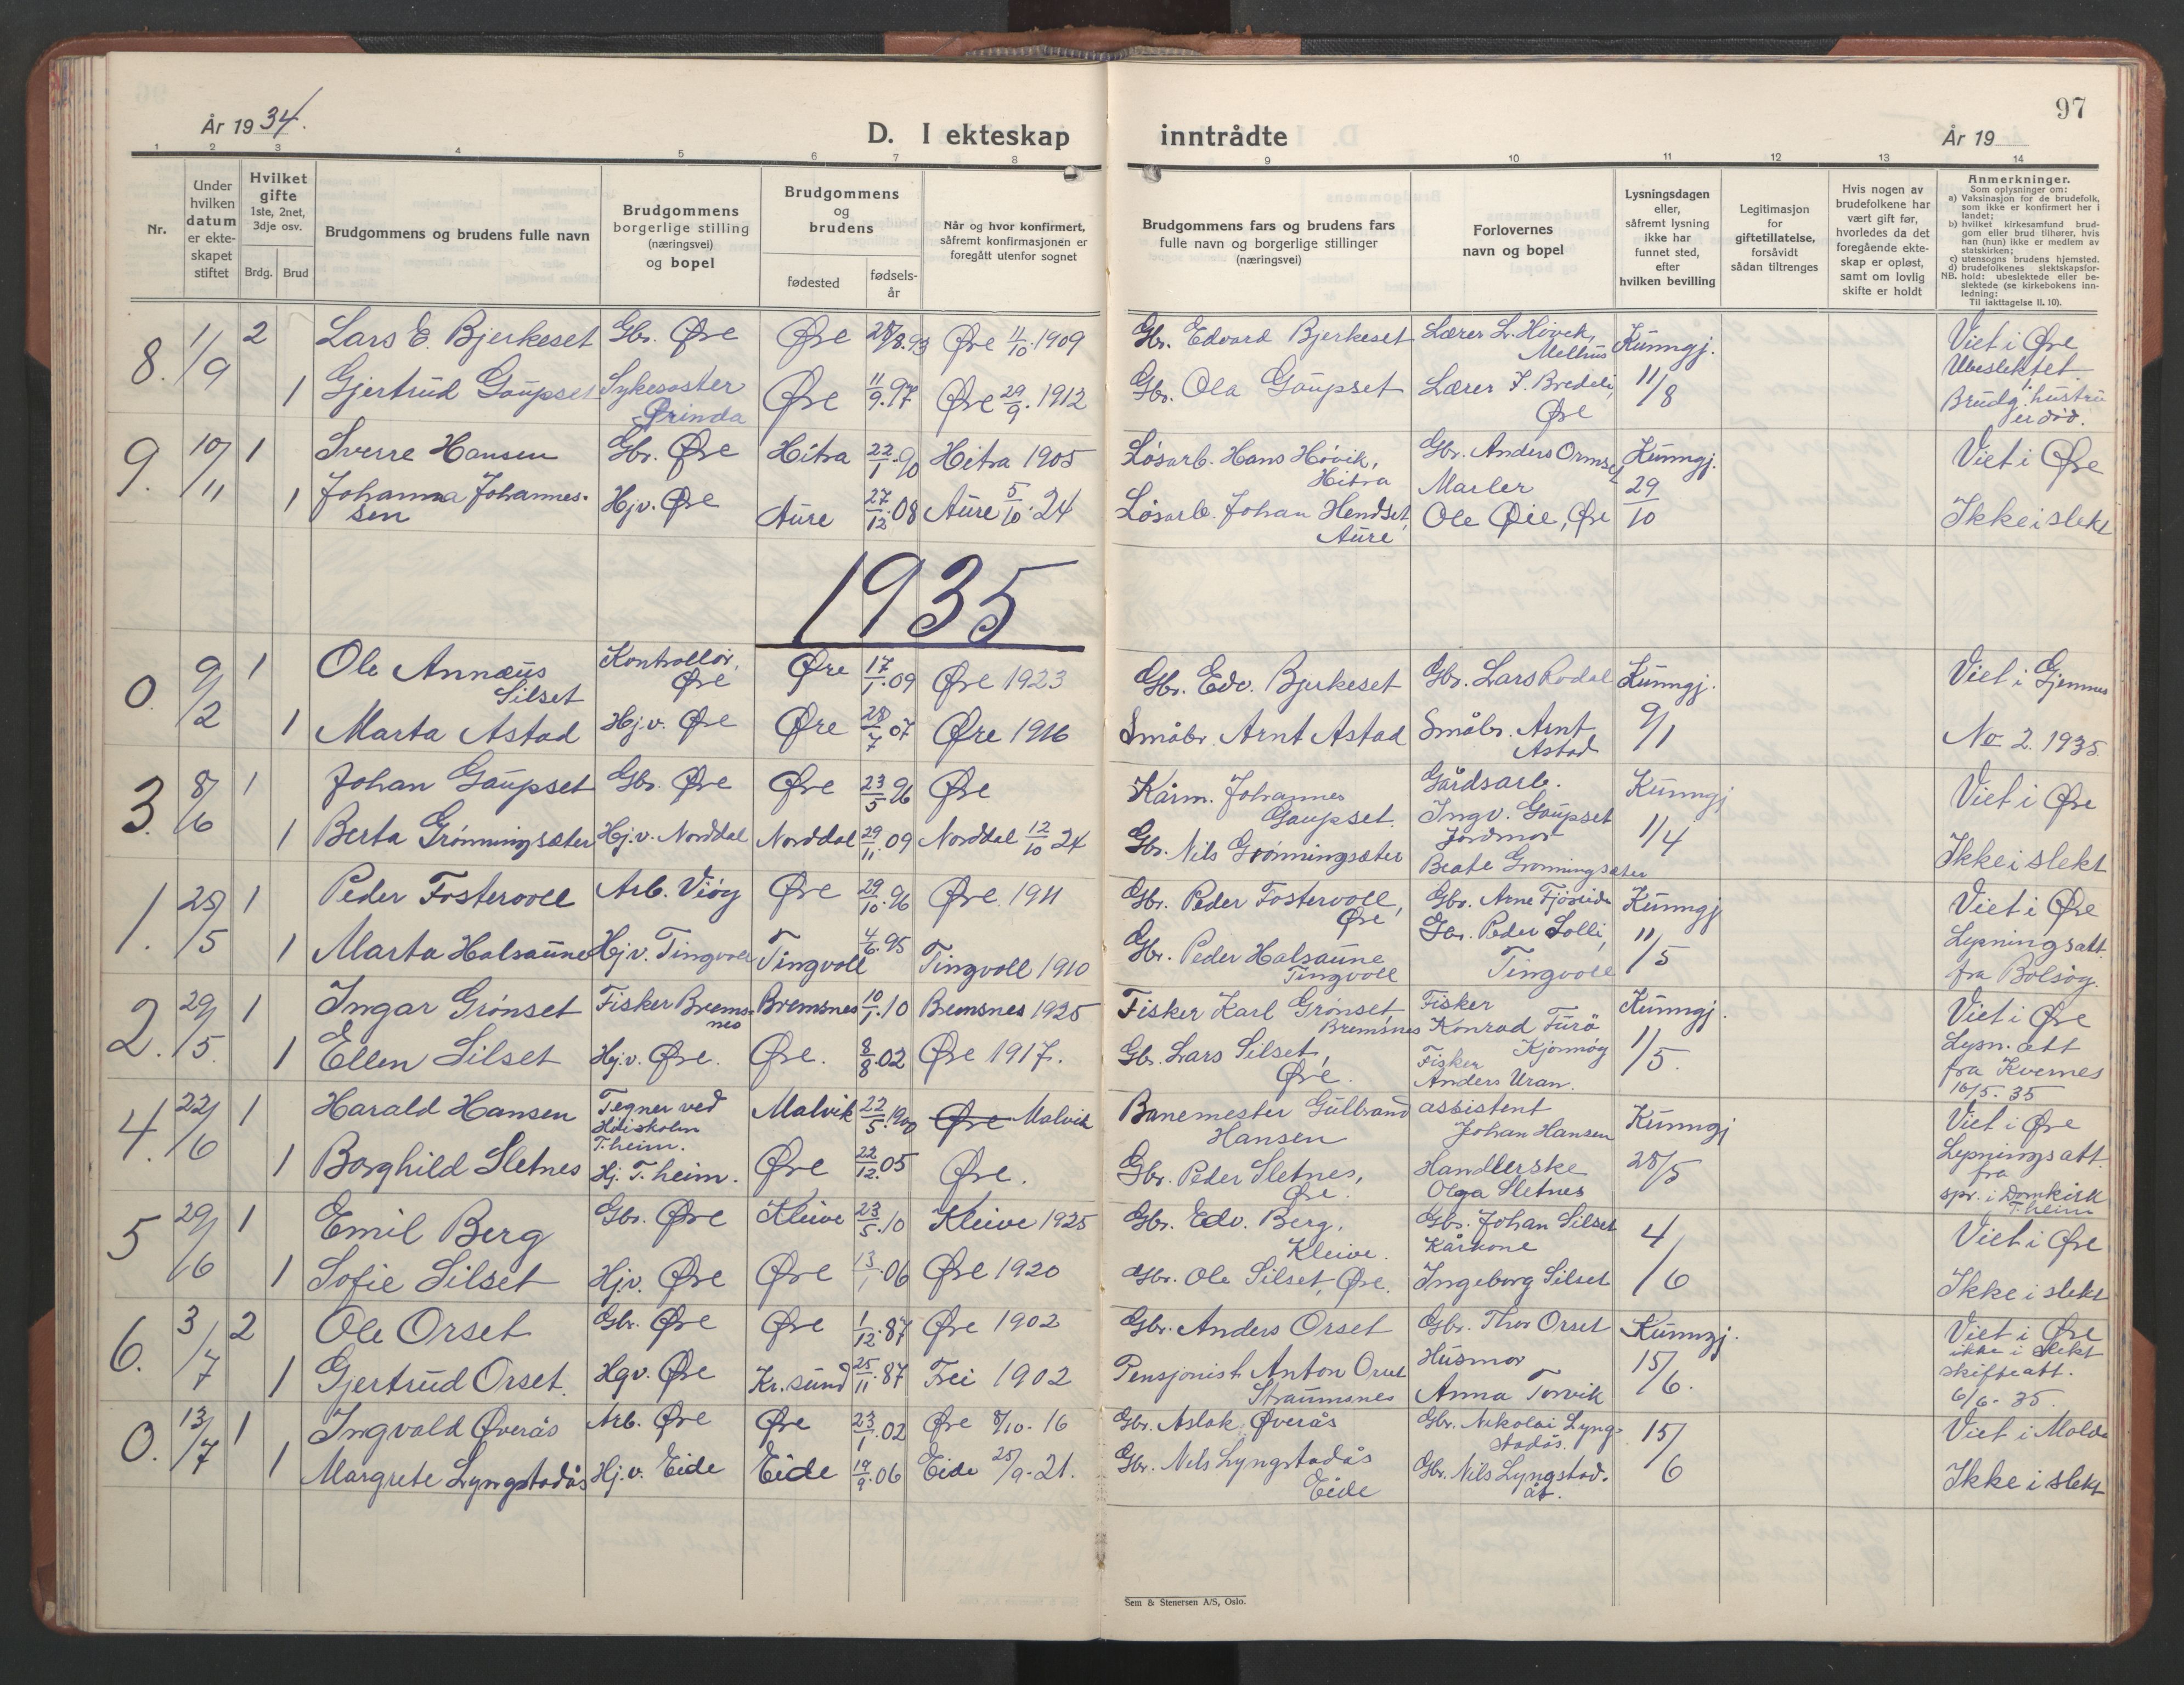 År 1934.
D. I ekteskap inntrådte
97
År 19
1 2 3 4 5 6 7 8 9 10 11 12 13 14
Nr.
Under hvilken datum er ekte-skapet stiftet
Hvilket gifte 1ste, 2net, 3dje osv.
Brdg. Brud
Brudgommens og brudens fulle navn
Brudgommens borgerlige stilling (næringsvei) og bopel
Brudgommens og brudens
fødested
fødsels-år
Når og hvor konfirmert, såfremt konfirmasjonen er foregått utenfor sognet
Brudgommens fars og brudens fars fulle navn og borgerlige stillinger (næringsvei)
Forlovernes navn og bopel
Lysningsdagen eller, såfremt lysning ikke har funnet sted, efter hvilken bevilling
Legitimasjon for giftetillatelse, forsåvidt sådan tiltrenges
Hvis nogen av brudefolkene har vært gift før, hvorledes da det foregående ekte-skap er opløst, samt om lovlig skifte er holdt
Anmerkninger.
Som oplysninger om:
a) Vaksinasjon for de brudefolk, som ikke er konfirmert her i landet;
b) hvilket kirkesamfund brud-gom eller brud tilhører, hvis han (hun) ikke er medlem av statskirken;
c) utensogns brudens hjemsted.
d) brudefolkenes slektskapsfor-hold: ubeslektede eller be-slektede (se kirkebokens inn-ledning:
NB.
Til iakttagelse II. 10).
8. 11/9 2 Lars E. Bjerkeset Gbr. Øre Øre 28/8.93 Øre 11/10.1909 Gbr. Edvard Bjerkeset Lærer L. Hövik, Melhus Kunngj. Viet i Øre
Ubeslektet
1 Gjertrud Gaupset Sykesøster Ørinda Øre 11/9.97 Øre 29/9.1912 Gbr. Ola Gaupset Lærer J. Bredeli, Øre 11/8 Brudg. hustru er død.
9. 10/11 1 Sverre Hansen Gbr. Øre Hitra 22/1.90 Hitra 1905 Løsarb. Hans Hövik, Hitra Gbr. Anders Ormset Kunngj. Viet i Øre
1 Johanna Johannes-sen Hjv. Øre Aure 27/12.08 Aure 5/10.24 Løsarb. Johan Hendset, Aure Marler Ole Øie, Øre 29/10 Ikke i slekt
1935
0. 9/2 1 Ole Annæus Silset Kontrollør, Øre Øre 17/1.09 Øre 1923 Gbr. Edv. Bjerkeset Gbr. Lars Rødal Kunngj. Viet i Gjemnes
1 Marta Astad Hjv. Øre Øre 28/7 07 Øre 1916 Småbr. Arnt Astad Småbr. Arnt Astad 9/1 No 2. 1935
3. 8/6 1 Johan Gaupset Gbr. Øre Øre 23/5 96 Øre Kårm. Johannes Gaupset. Gårdsarb. Ingv. Gaupset Kunngj Viet i Øre
1 Berta Grønningsæter Hj.v. Norddal Norddal 29/11 09 Norddal 12/10 24 Gbr. Nils Grønningsæter Jordmor Beate Grønningsæter 1/4 Ikke i slekt
1. 25/5 1 Peder Fostervoll Arb. Viög Øre 29/10.96 Øre 1911 Gbr. Peder Fostervoll, Øre Gbr. Arne Fjöseide Kunngj Viet i Øre
1 Marta Halsaune Hjv. Tingvoll Tingvoll 4/6.95 Tingvoll 1910 Gbr. Peder Halsaune Tingvoll Gbr. Peder Solli, Tingvoll 11/5 Lysningsatt. fra Bolsöy.
2. 29/5. 1 Ingar Grönset Fisker Brems-nes Bremsnes 10/1.10 Bremsnes 1925 Fisker Karl Grönset Bremsnes Fisker Konrad Turö Kunngj. Viet i Øre
1 Ellen Silset Hj.v. Øre. Øre. 8/8.02 Øre 1917. Gbr. Lars Silset, Øre. Fisker Anders Uran. 1/5. Lysn. att fra Kvernes 16/5. 35
4. 22/6 1 Harald Hansen Tegner ved Höiskolen T.heim. Malvik 22/5.1900 Øre Malvik Banemester Gulbrand Hansen assistent Johan Hansen Kunngj Viet i Øre
1 Borghild Sletnes Hj. T. heim. Øre 22/12.05 Øre. Gbr. Peder Sletnes, Øre. Handlerske Olga Sletnes 28/5 Lysningsatt. fra spr. i Domkirk T.heim
5 29/6 1 Emil Berg Gbr. Øre Kleive 23/5.10 Kleive 1925 Gbr. Edv. Berg, Kleive. Gbr. Johan Silset 4/6 Viet i Øre
1 Sofie Silset Hj.v. Øre Øre 13/1.06 Øre 1920 Gbr. Ole Silset, Øre. Kårkone Ingeborg Silset Ikke i slekt
6. 3/7 2 Ole Orset Gbr. Øre Øre 1/12.87 Øre 1902 Gbr. Anders Orset Gbr. Thor Orset Kunngj. Viet i Øre ikke i slekt
1 Gjertrud Orset. Hgv. Øre Kr.sund 25/11.87 Frei 1902 Pensjonist Anton Orset Straumsnes Husmor Anna Torvik 15/6. skifteatt. 6/6-35.
0. 13/7 1 Ingvald Øverås Arb. Øre Øre 23/1.02 Øre 8/10-16 Gbr. Aslak Øverås Gbr. Nikolai Lyng-stadås. 15/6 Viet i Molde
1 Margrete Lyngstadås Hj.v. Eide Eide 19/9.06 Eide 25/9-21. Gbr. Nils Lyngstadås Eide Gbr. Nils Lyngstad-ås. Ikke i slekt
Sem & Stenersen A/S, Oslo.